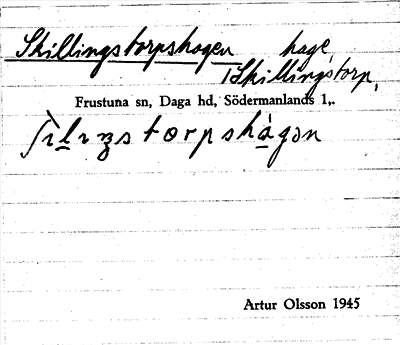 Skillingstorpshagen hage,
i Skillingstorp,
Frustuna sn, Daga hd, Södermanlands l,.
ʃìlıŋstorpshàgən
Artur Olsson 1945